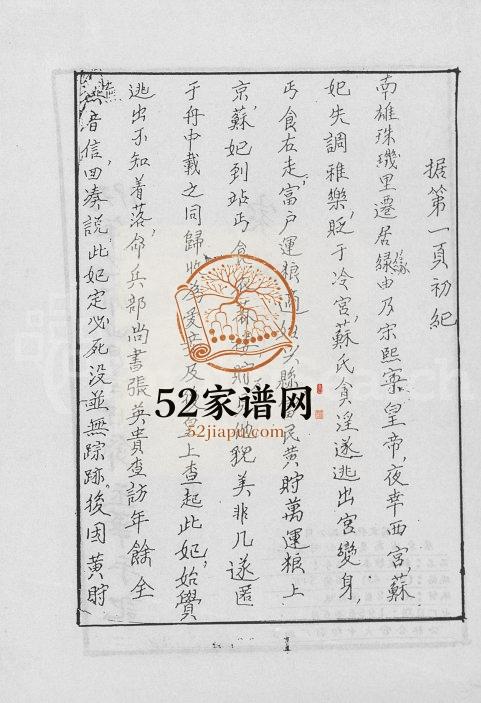 据第一頁初紀
南雄珠璣里遷居緣由乃宋熙寧皇帝,夜幸西宮,蘇
妃失調雅樂,貶于冷宮,蘇氏貪淫遂逃出宮變身,
丐食右走,富户運粮 縣 民黄貯萬運粮上
京,蘇妃到站丐食 貯 貌美非凡遂匿
于舟中載之同歸 及 皇上查起此妃,始覺
逃出不知着落,命兵部尚書張英貴查訪年餘全
無音信,回凑說,此妃定必死没並無踪跡,後因黄貯
52家谱网
52jiapu.com